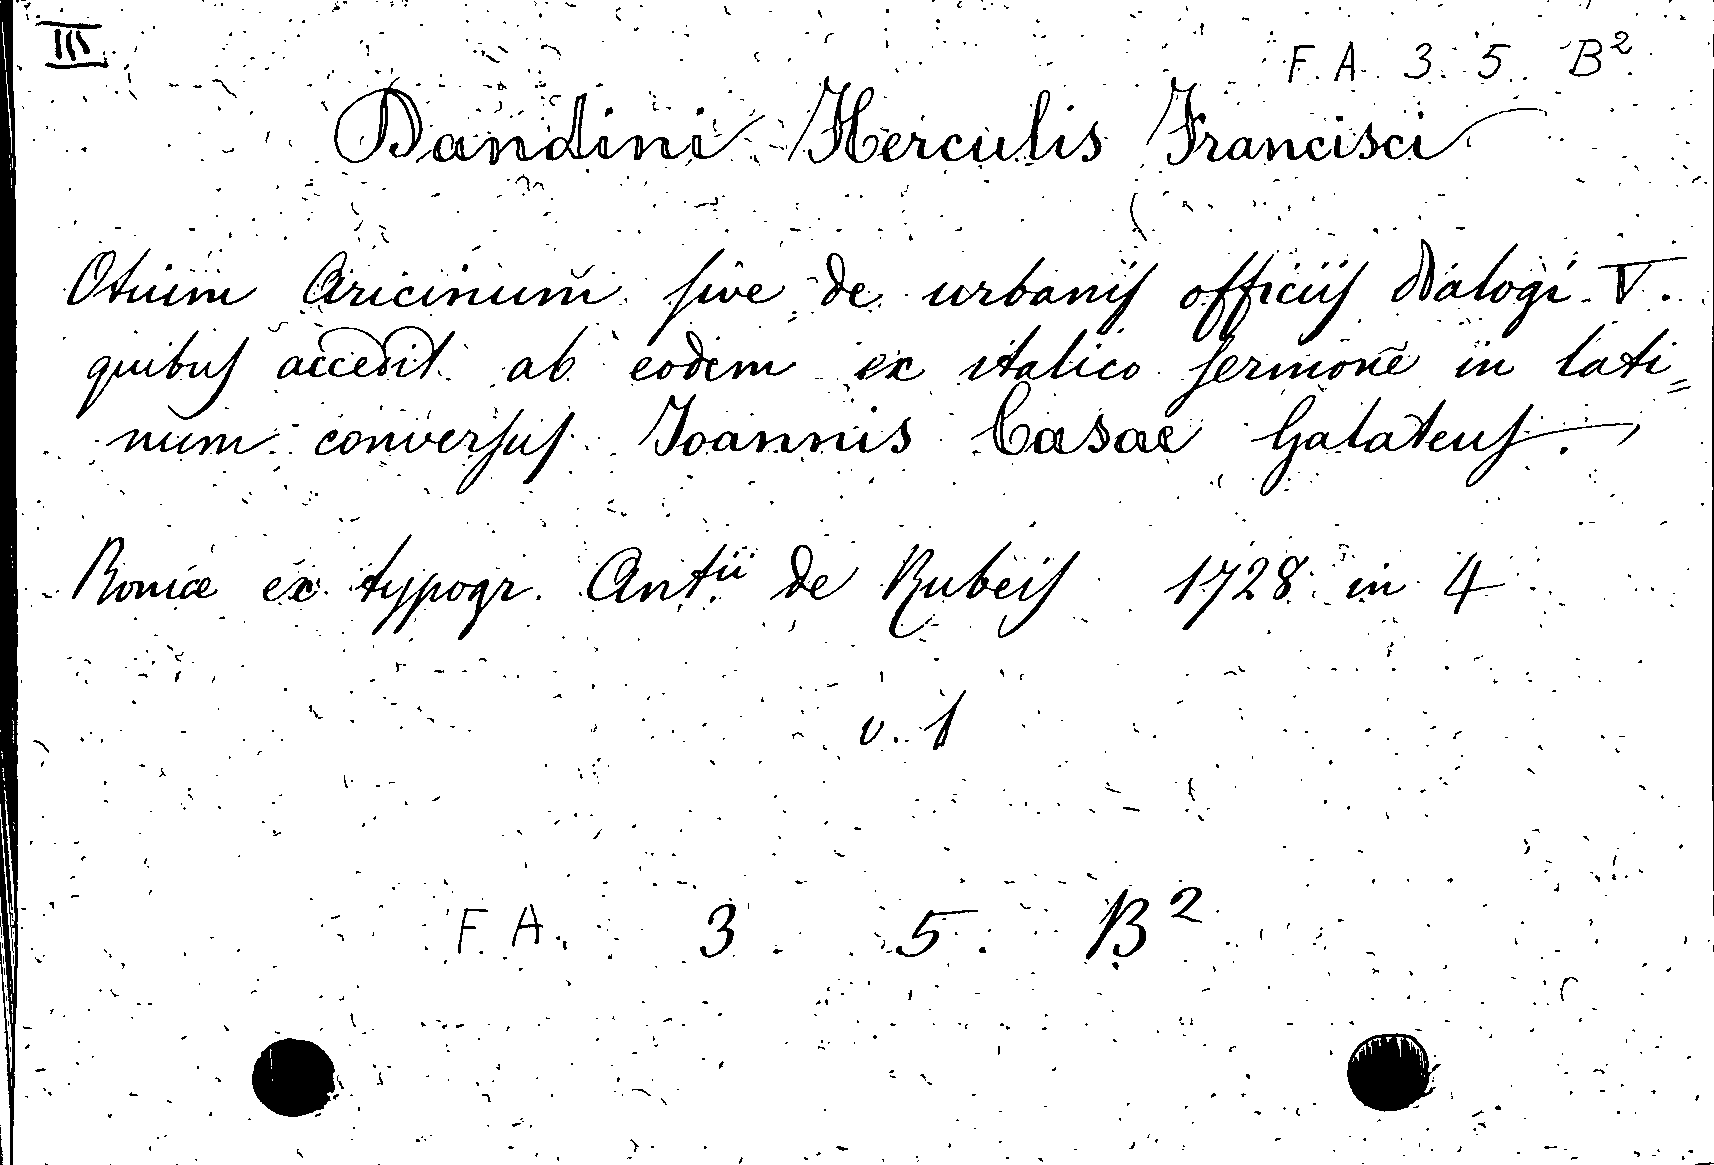 III
F. A. 3. 5. B²
Dandini Herculis Francisci
Otium Aricinum sive de urbanis officiis dialogi V.
quibus accedit ab eodem ex italico sermone in lati=
num conversus Joannis Casae Galateus.
Romæ ex typogr. Antii de Rubeis 1728 in 4
v. 1
F. A. 3. 5. B²